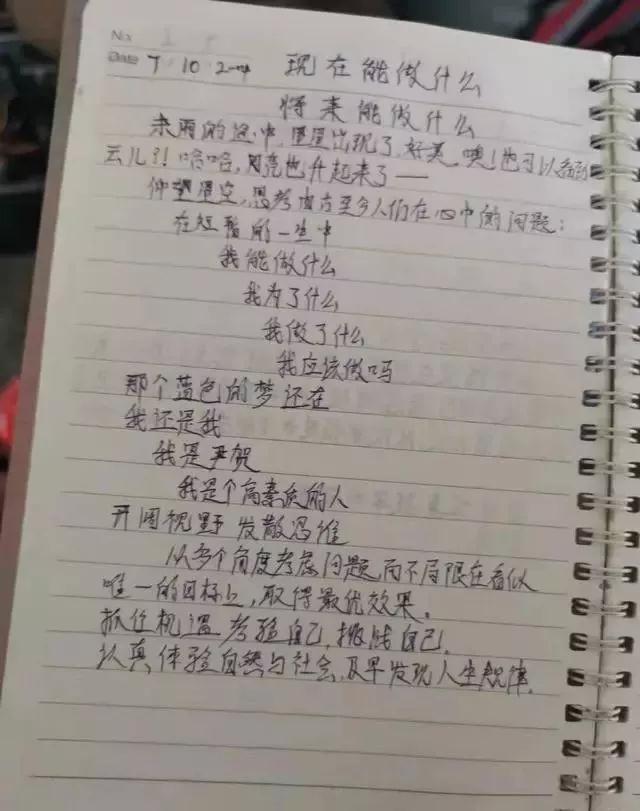 No.
Date 7.10.2004 现在能做什么
将来能做什么
来雨的途中,星星出现了,好美,噢!也可以看到
云儿?!哈哈,月亮也升起来了——
仰望星空,思考自古至今人们在心中的问题:
在短暂的一生中
我能做什么
我为了什么
我做了什么
我应该做吗
那个蓝色的梦还在
我还是我
我是严贺
我是个高素质的人
开阔视野 发散思维
从多个角度考虑问题,而不局限在看似
唯一的目标上,取得最优效果。
抓住机遇 考验自己,挑战自己。
认真体验自然与社会,及早发现人生规律。